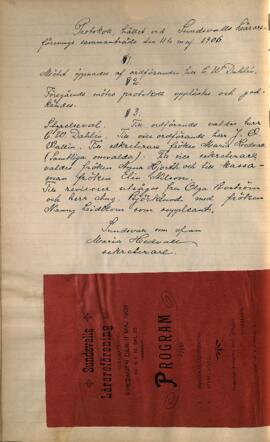 Protokoll, hållet vid Sundsvalls lärare-
förenings sammanträde den 11 maj 1906.
§1.
Mötet öppnades af ordföranden hr C. W. Dahlin.
§2.
Föregående mötes protokoll upplästes och god-
kändes.
§3.
Styrelseval. Till ordförande valdes herr
C. W. Dahlin. Till vice ordförande herr J. O.
Wallin. Till sekreterare fröken Maria Hedvall
(Samtliga omvalda). Till vice sekreterare
valdes fröken Anna Hjorth och till kassa-
man fröken Elin Nilson.
Till revisorer utsågos fru Olga Boström
och herr Aug. Björklund med fröken
Nanny Lidblom som suppleant.
Sundsvall som ofvan
Maria Hedvall
sekreterare.
Sundsvalls
Lärareförening
FREDAGEN DEN 11 MAJ 1906
PROGRAM